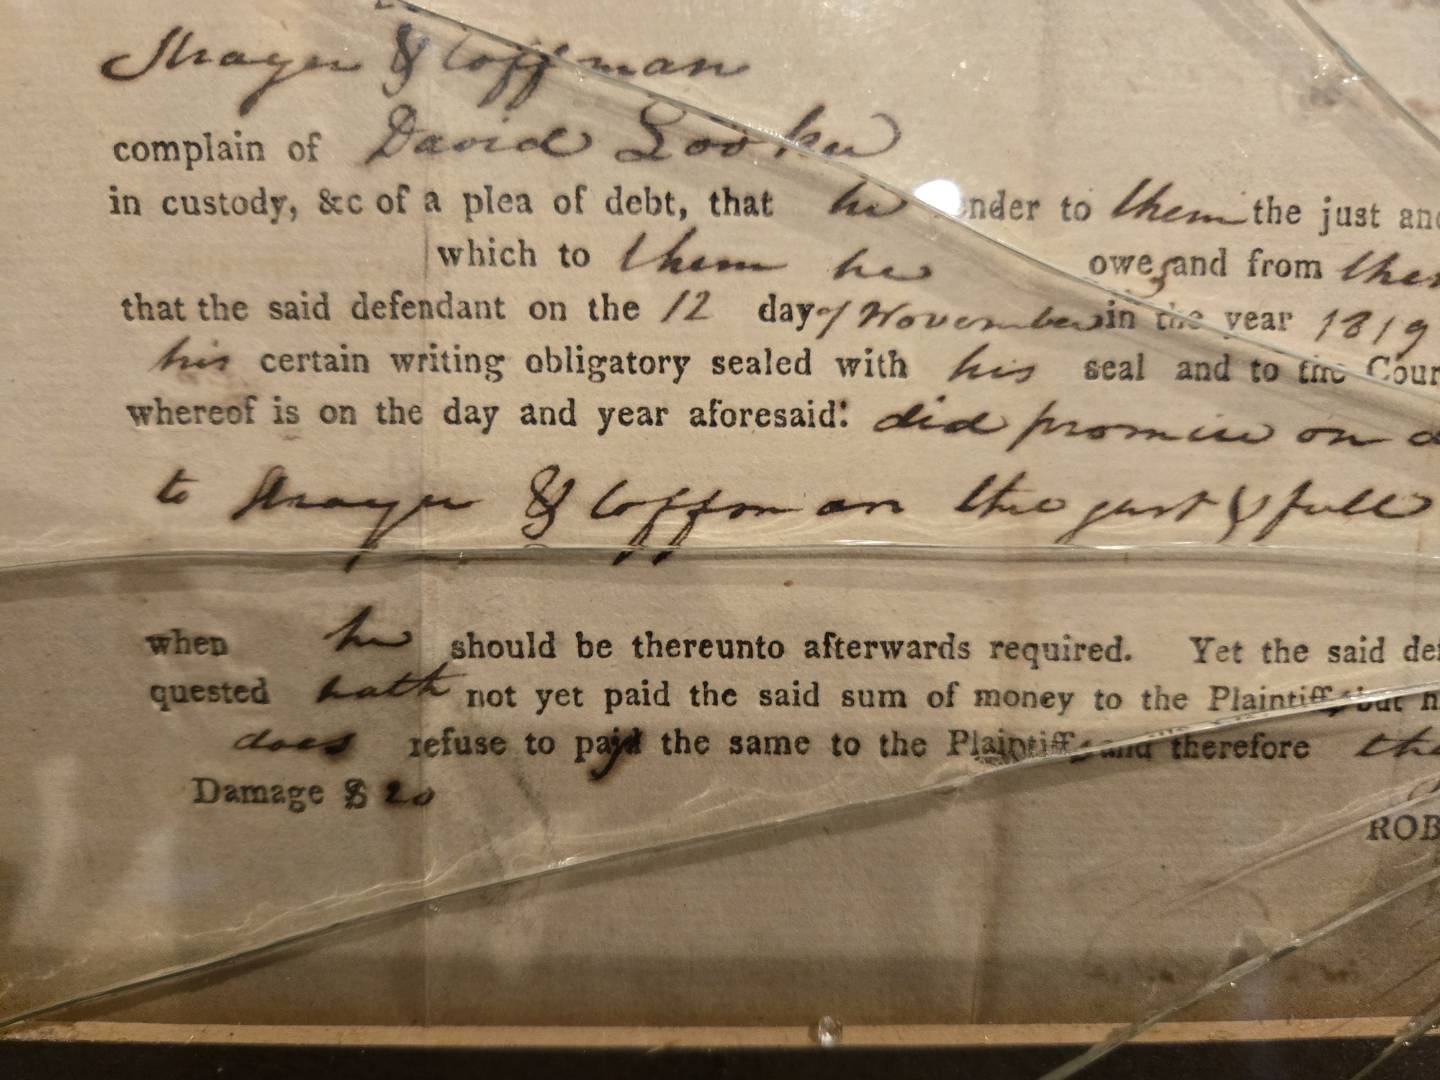 Strayer & Coffman
complain of David Looker
in custody, &c of a plea of debt, that he ender to them the just and
which to them he owes and from them
that the said defendant on the 12 day of November in the year 1819
his certain writing obligatory sealed with his seal and to the Cour
whereof is on the day and year aforesaid: did promise on
to Strayer & Coffman the just & full
when he should be thereunto afterwards required. Yet the said def
quested hath not yet paid the said sum of money to the Plaintiffs but h
does refuse to pay the same to the Plaintiffs and therefore the
Damage $ 20
ROB